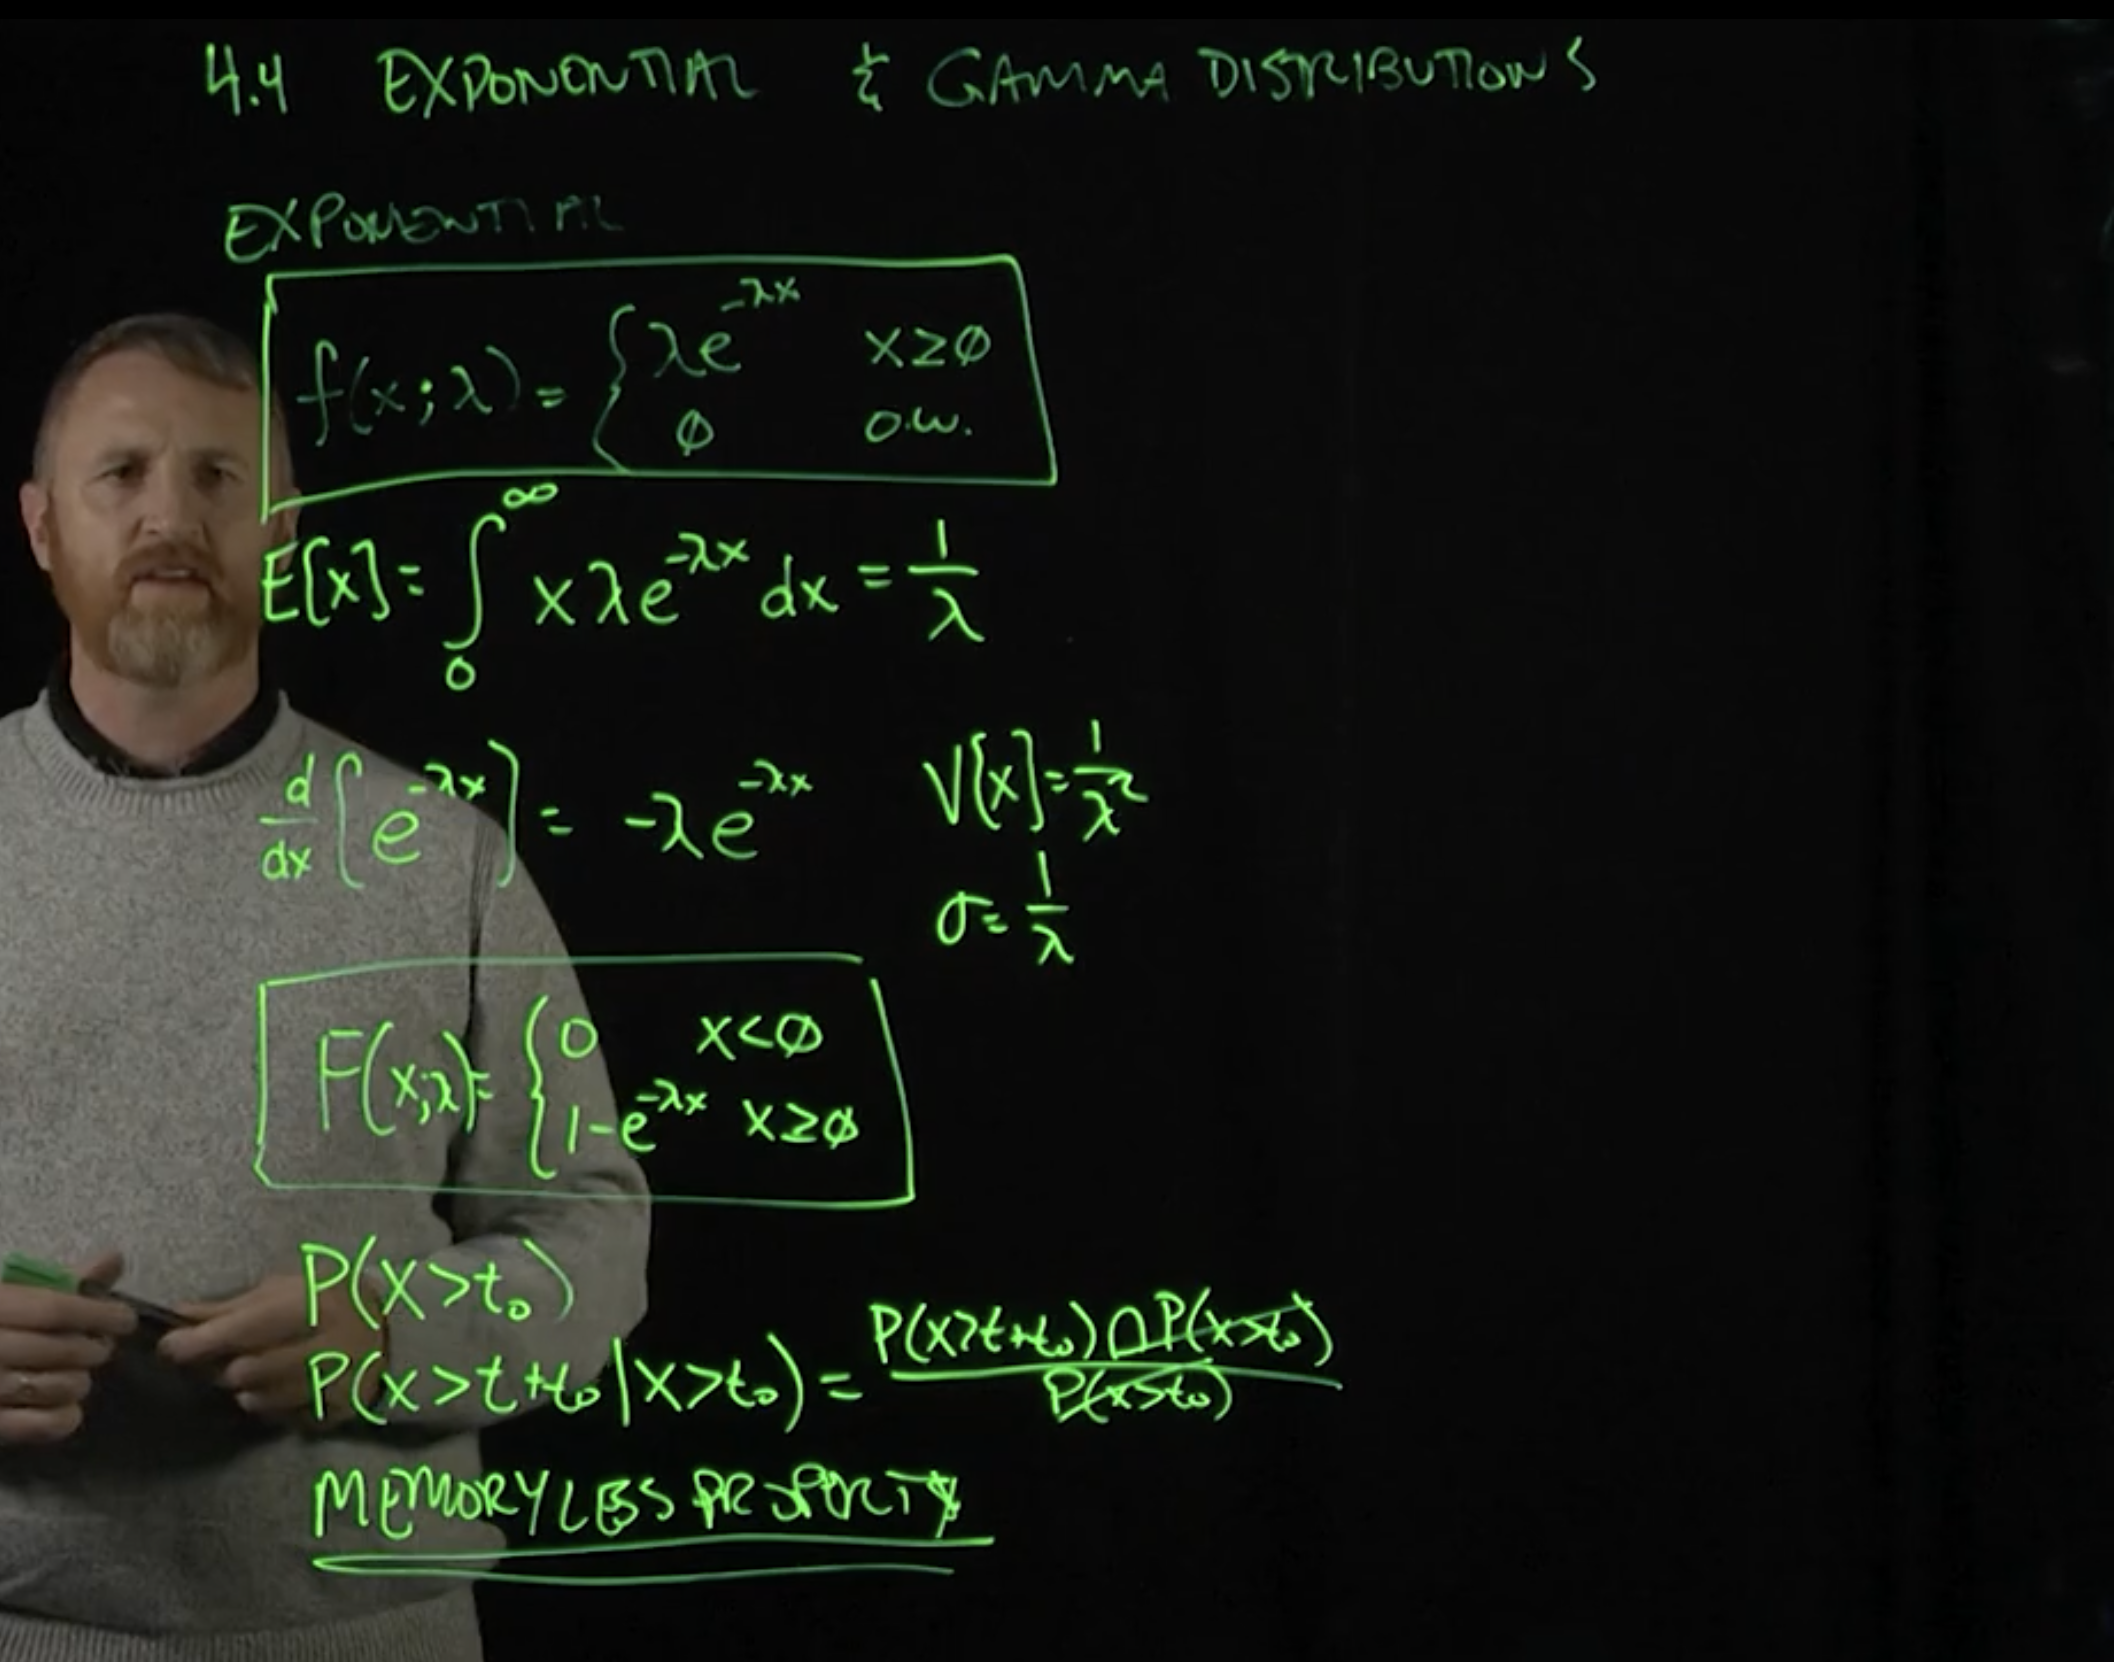 4.4 EXPONENTIAL & GAMMA DISTRIBUTIONS
EXPONENTIAL
f(x;λ) = { λe^{-λx} x≥∅
∅ o.w.
E[x] = ∫_0^∞ xλe^{-λx} dx = 1/λ
d/dx [e^{-λx}] = -λe^{-λx} V[x] = 1/λ²
σ = 1/λ
F(x;λ) = { 0 x<∅
1-e^{-λx} x≥∅
P(X>t₀)
P(X>t+t₀|X>t₀) = P(X>t+t₀)∩P(X>t₀) / P(X>t₀)
MEMORYLESS PROPERTY